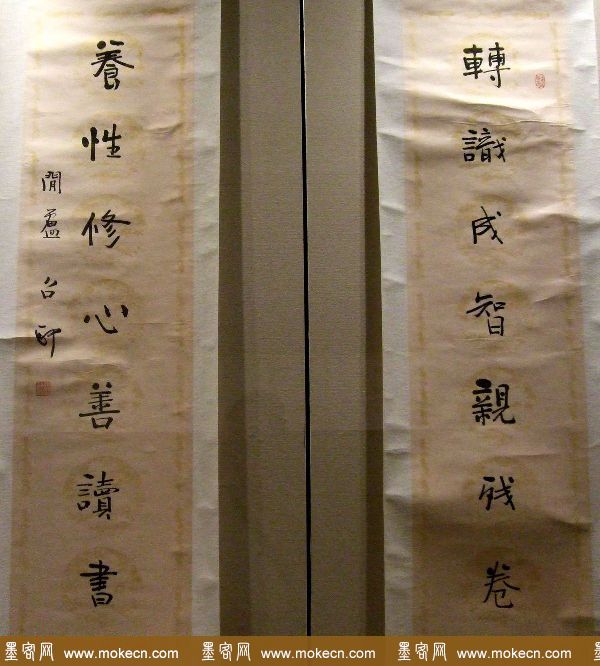 轉識成智親残卷
養性修心善讀書
墨客网 www.mokecn.com 墨客网 www.mokecn.com 墨客网 www.mokecn.com